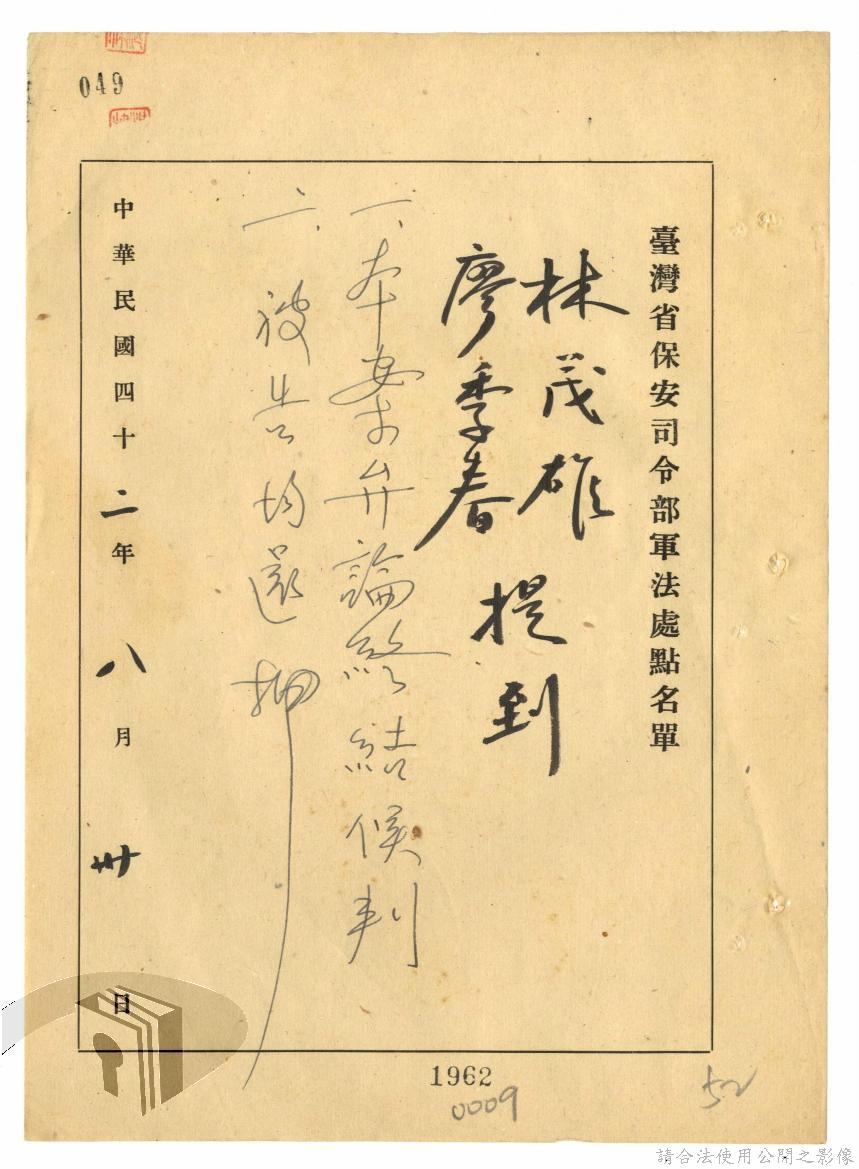 049
臺灣省保安司令部軍法處點名單
林茂雄
廖季春
提到
一、本案弁論終結候判
二、被告均還押
中華民國四十二年八月卅日
1962
0009
52
請合法使用公開之影像